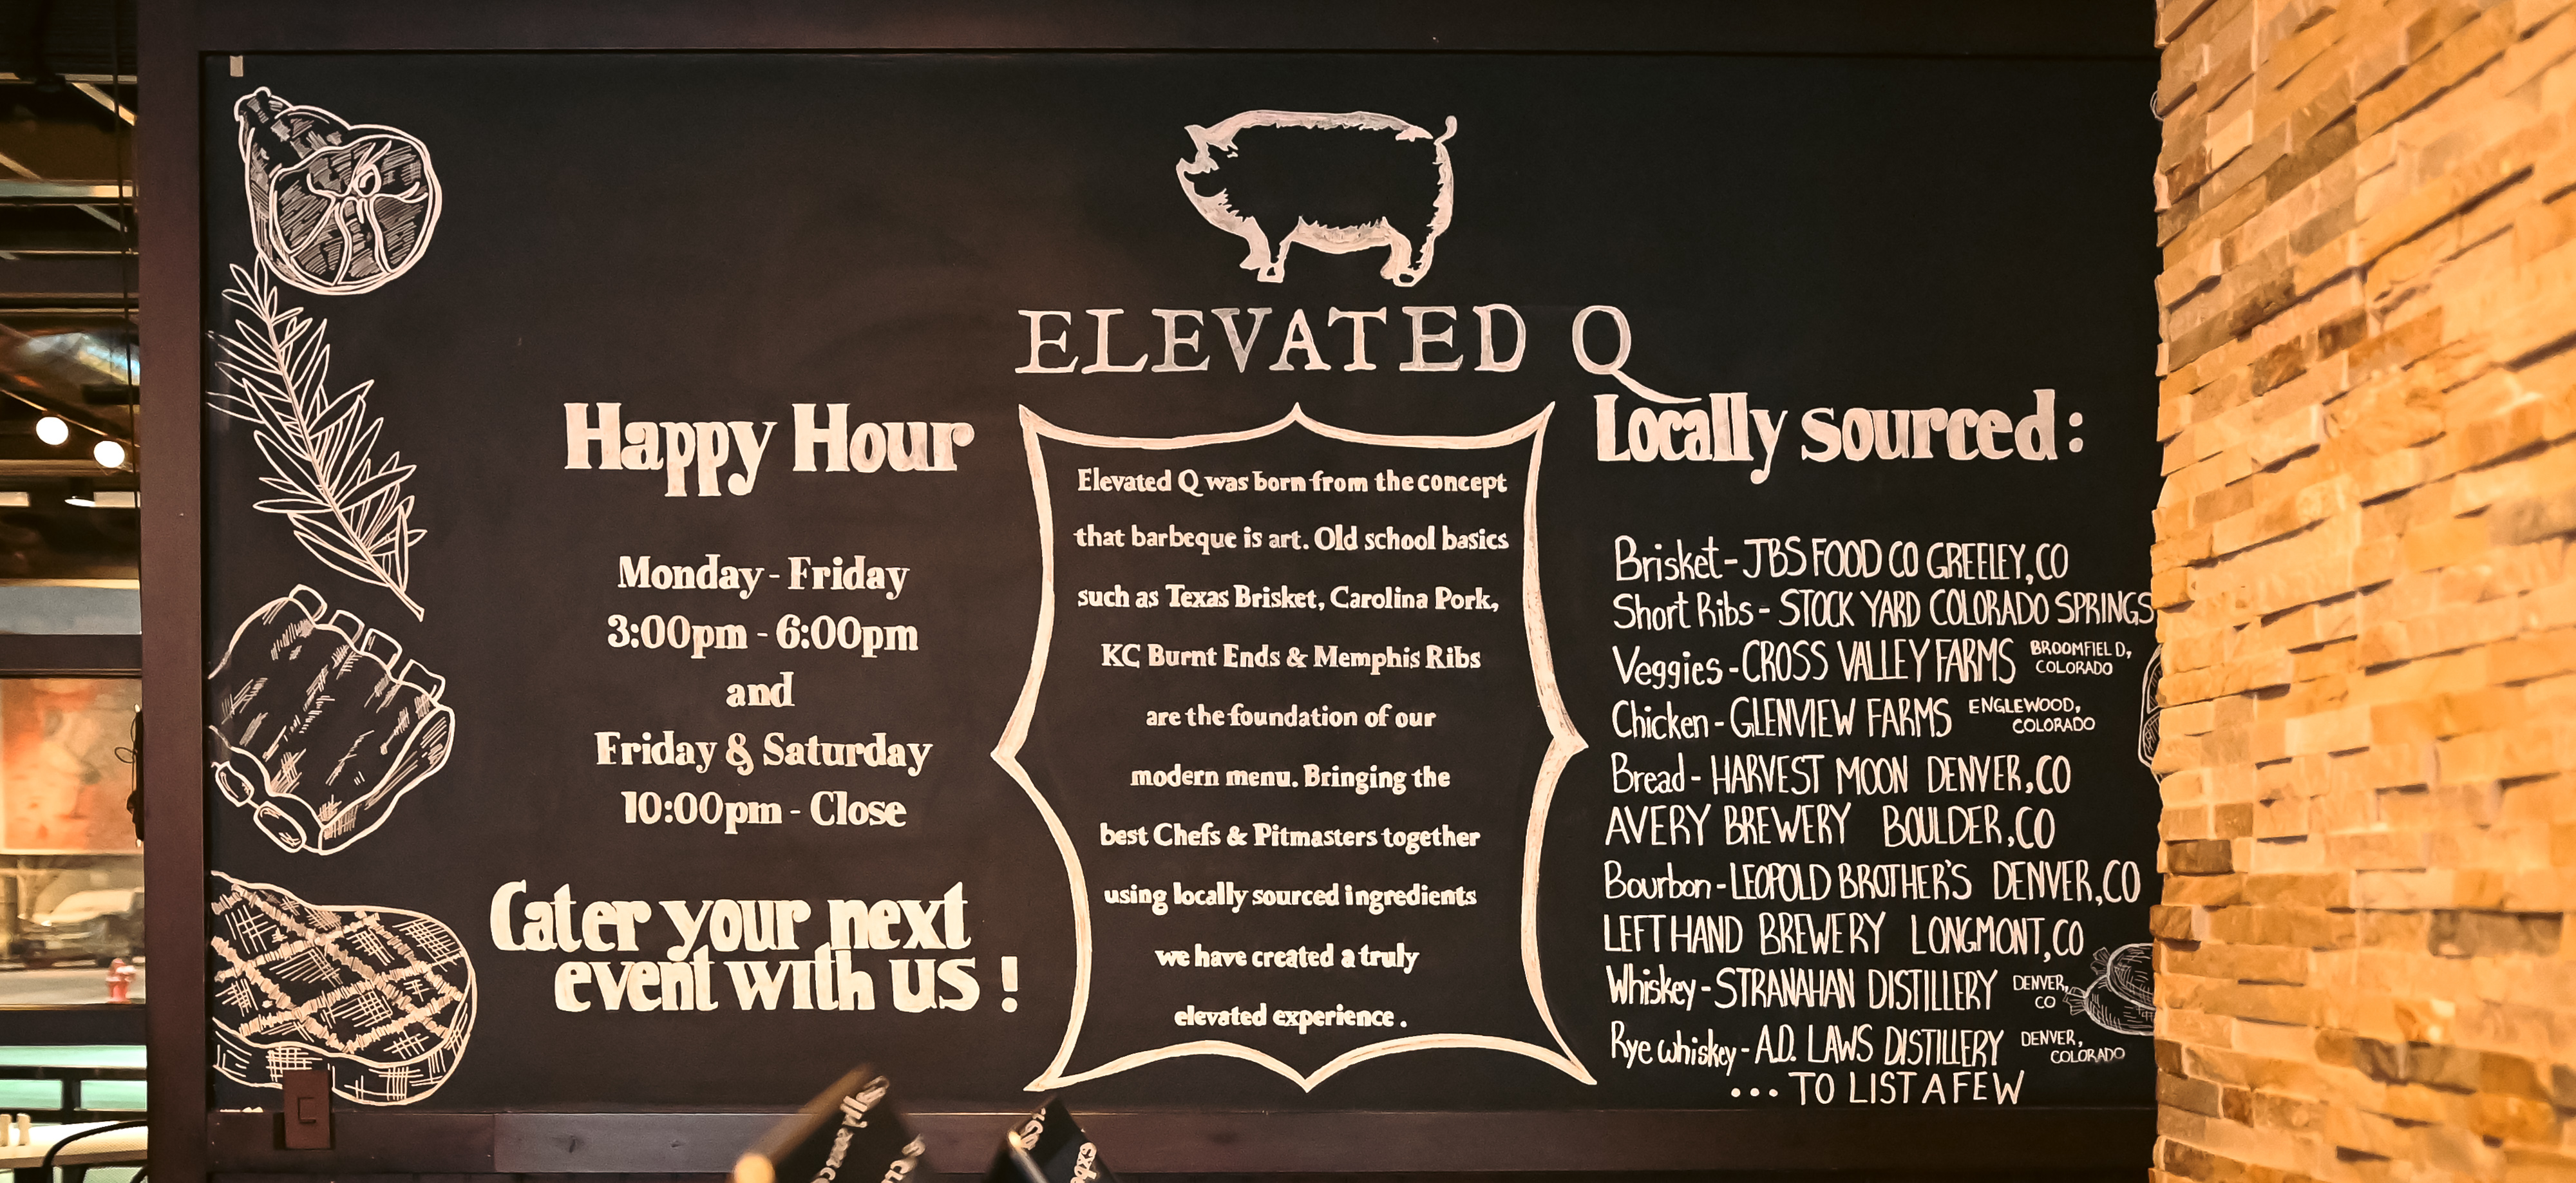 ELEVATED Q
Happy Hour
Monday - Friday
3:00pm - 6:00pm
and
Friday & Saturday
10:00pm - Close
Cater your next
event with us !
Elevated Q was born from the concept
that barbeque is art. Old school basics
such as Texas Brisket, Carolina Pork,
KC Burnt Ends & Memphis Ribs
are the foundation of our
modern menu. Bringing the
best Chefs & Pitmasters together
using locally sourced ingredients
we have created a truly
elevated experience.
Locally sourced:
Brisket - JBS FOOD CO GREELEY, CO
Short Ribs - STOCK YARD COLORADO SPRINGS
Veggies - CROSS VALLEY FARMS BROOMFIELD,
COLORADO
Chicken - GLENVIEW FARMS ENGLEWOOD,
COLORADO
Bread - HARVEST MOON DENVER, CO
AVERY BREWERY BOULDER, CO
Bourbon - LEOPOLD BROTHER'S DENVER, CO
LEFT HAND BREWERY LONGMONT, CO
Whiskey - STRANAHAN DISTILLERY DENVER,
CO
Rye whiskey - A.D. LAWS DISTILLERY DENVER,
COLORADO
... TO LIST A FEW